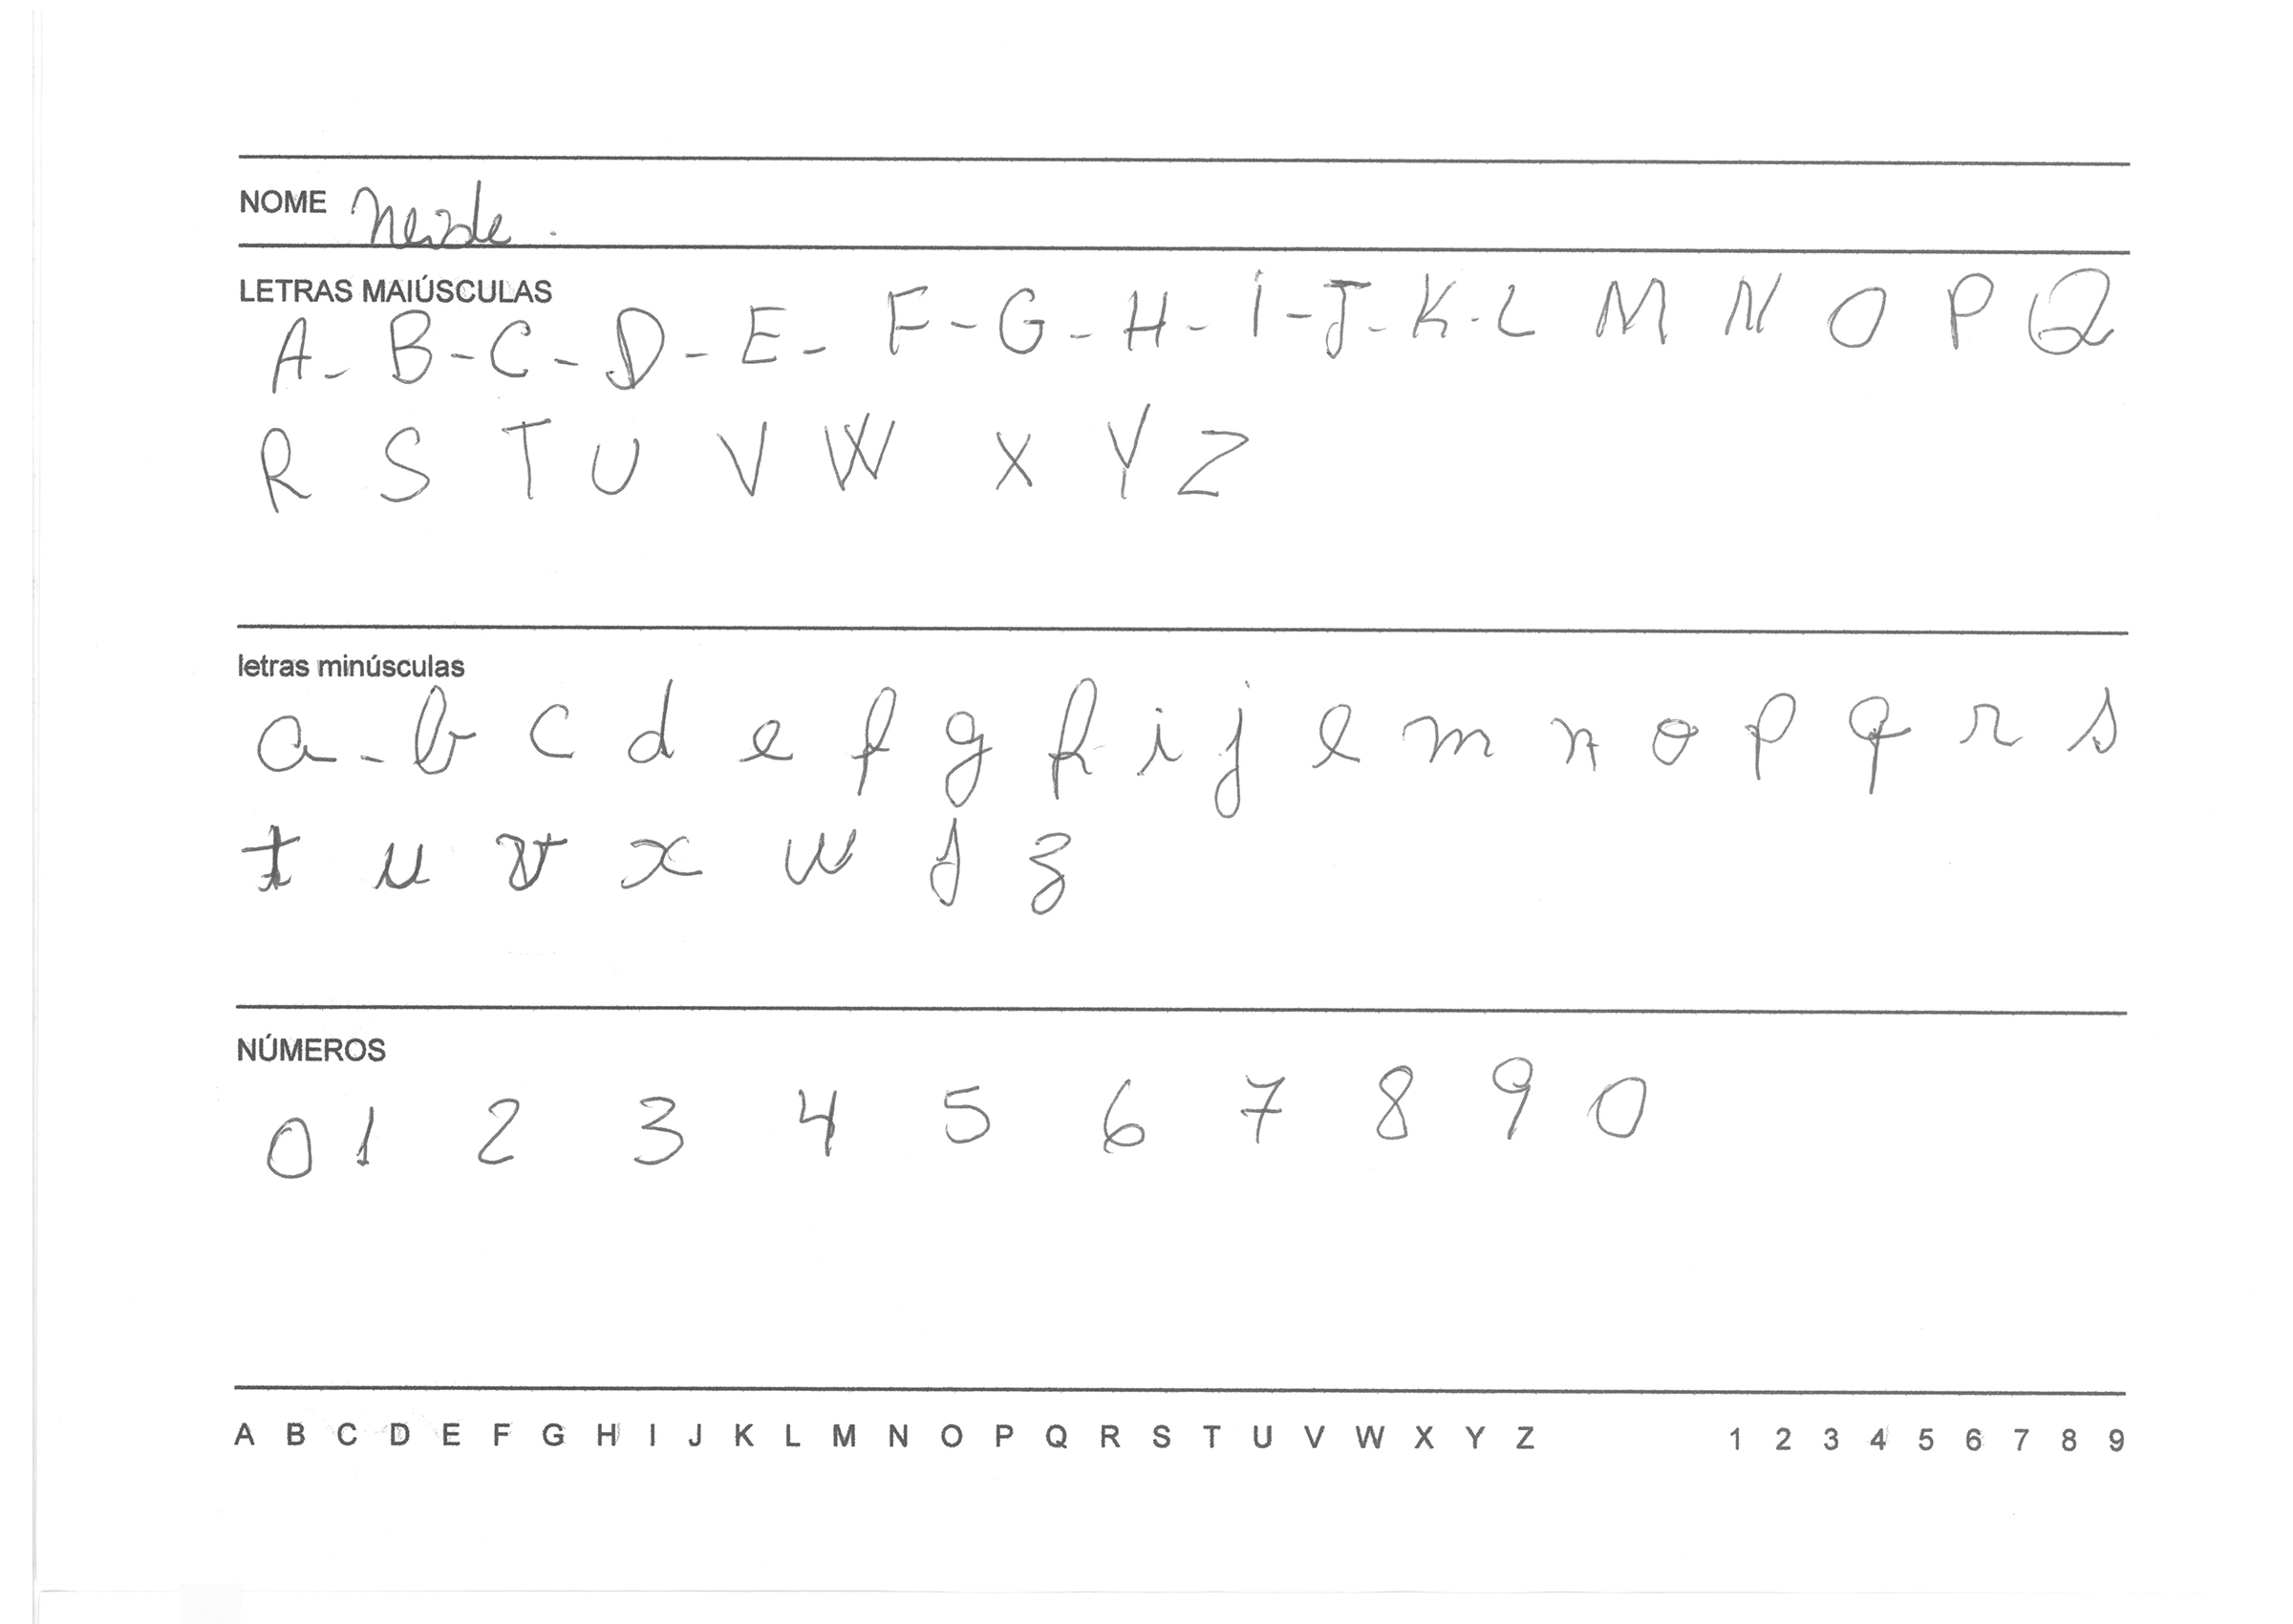 NOME Neide.
LETRAS MAIÚSCULAS
A - B - C - D - E - F - G - H - I - J - K - L M N O P Q
R S T U V W X Y Z
letras minúsculas
a - b c d e f g h i j l m n o p q r s
t u v x w y z
NÚMEROS
0 1 2 3 4 5 6 7 8 9 0
A B C D E F G H I J K L M N O P Q R S T U V W X Y Z 1 2 3 4 5 6 7 8 9